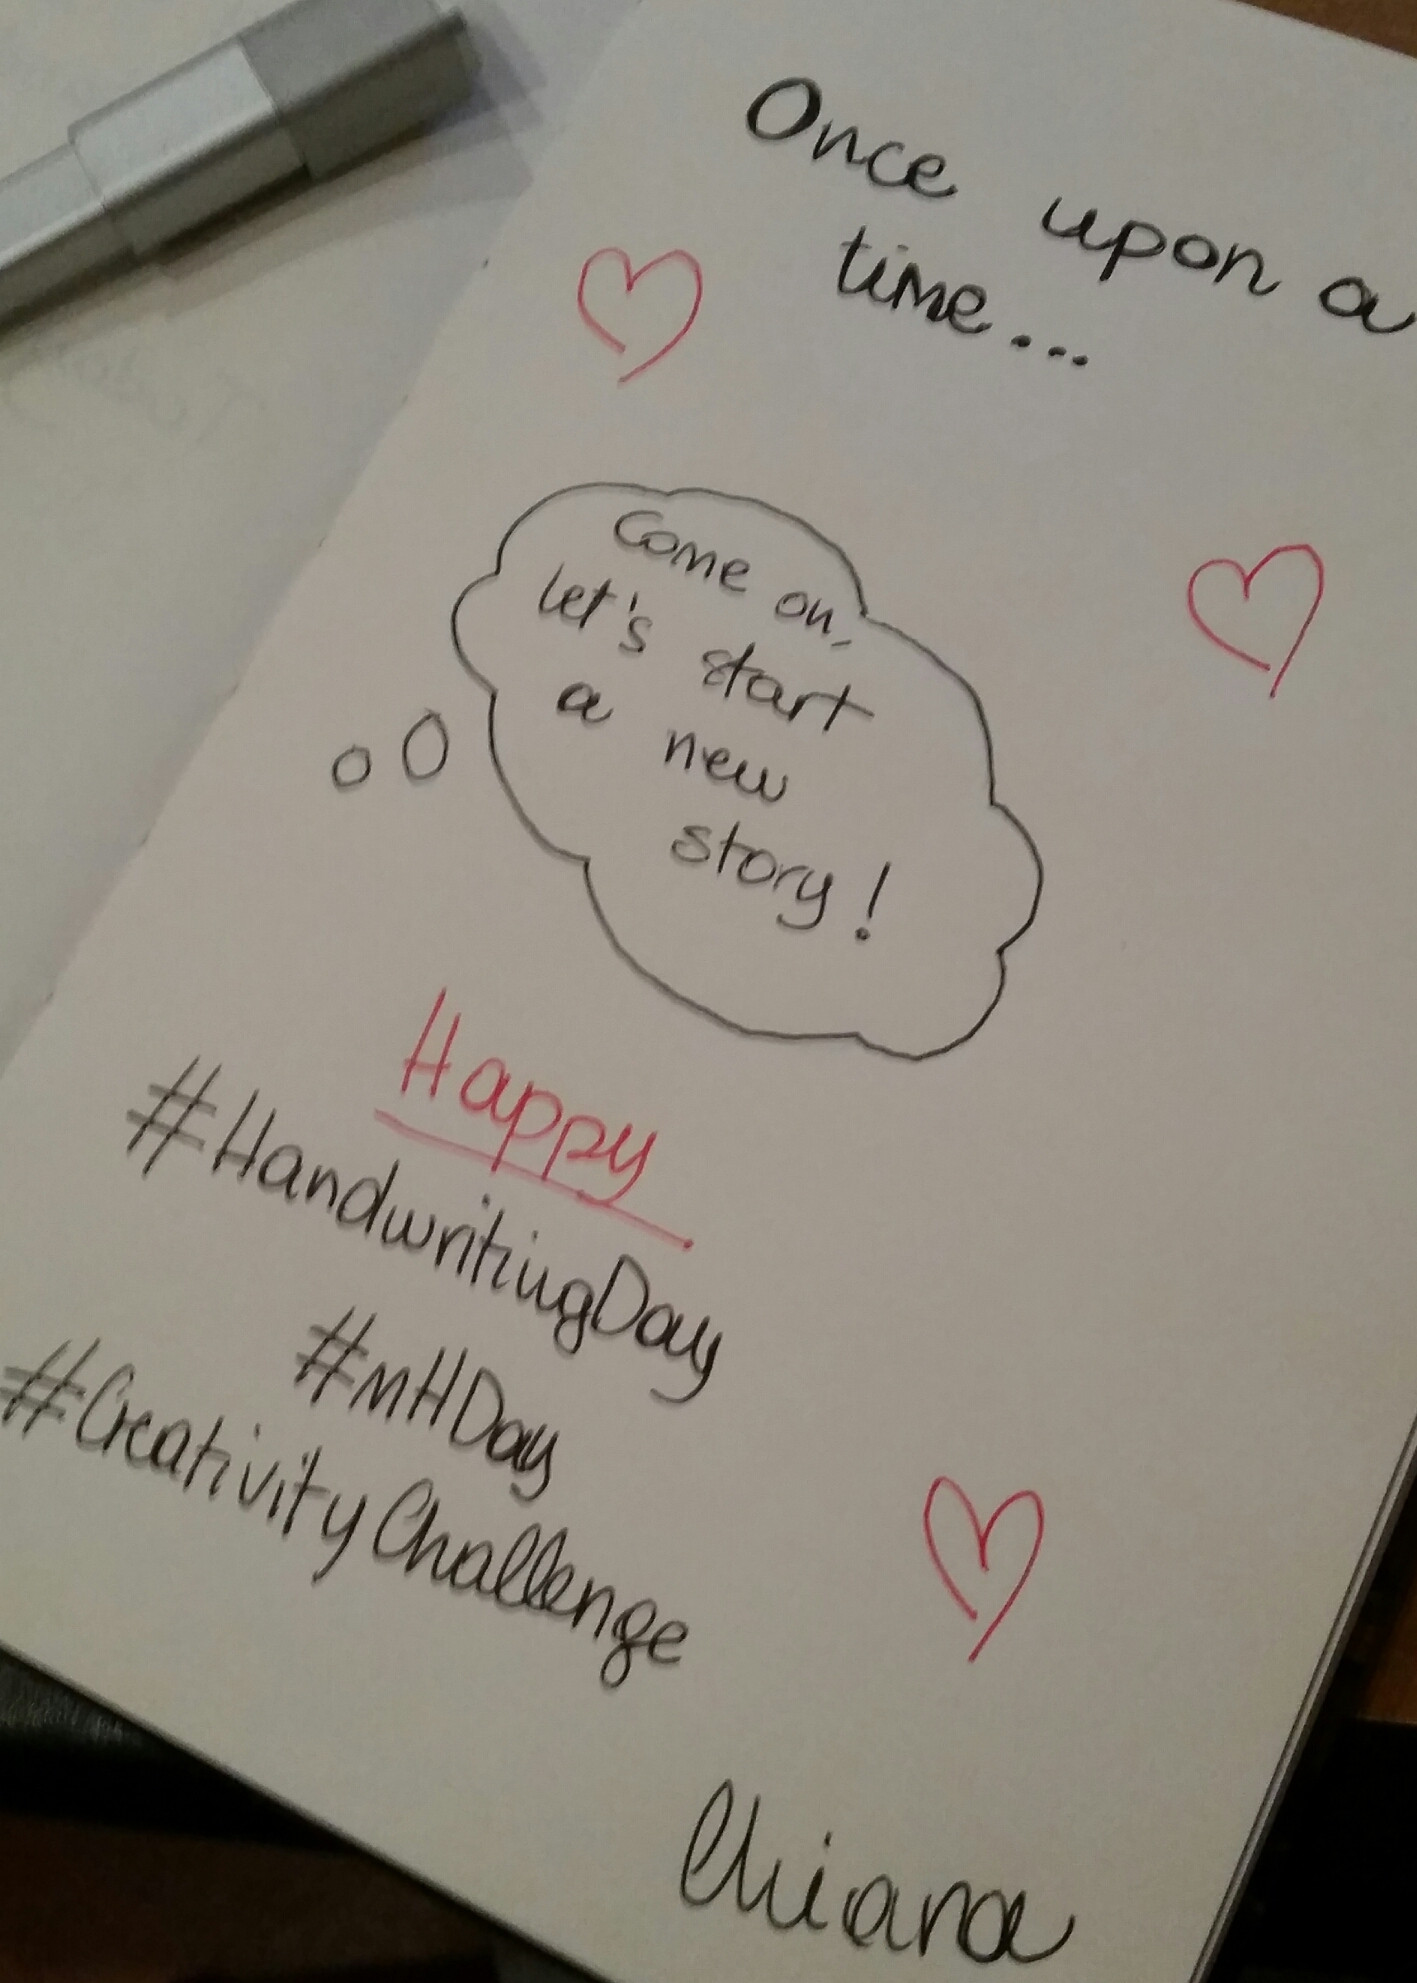 Once upon a
time...
Come on,
let's start
a new
story!
Happy
#HandwritingDay
#mHDay
#CreativityChallenge
Chiara